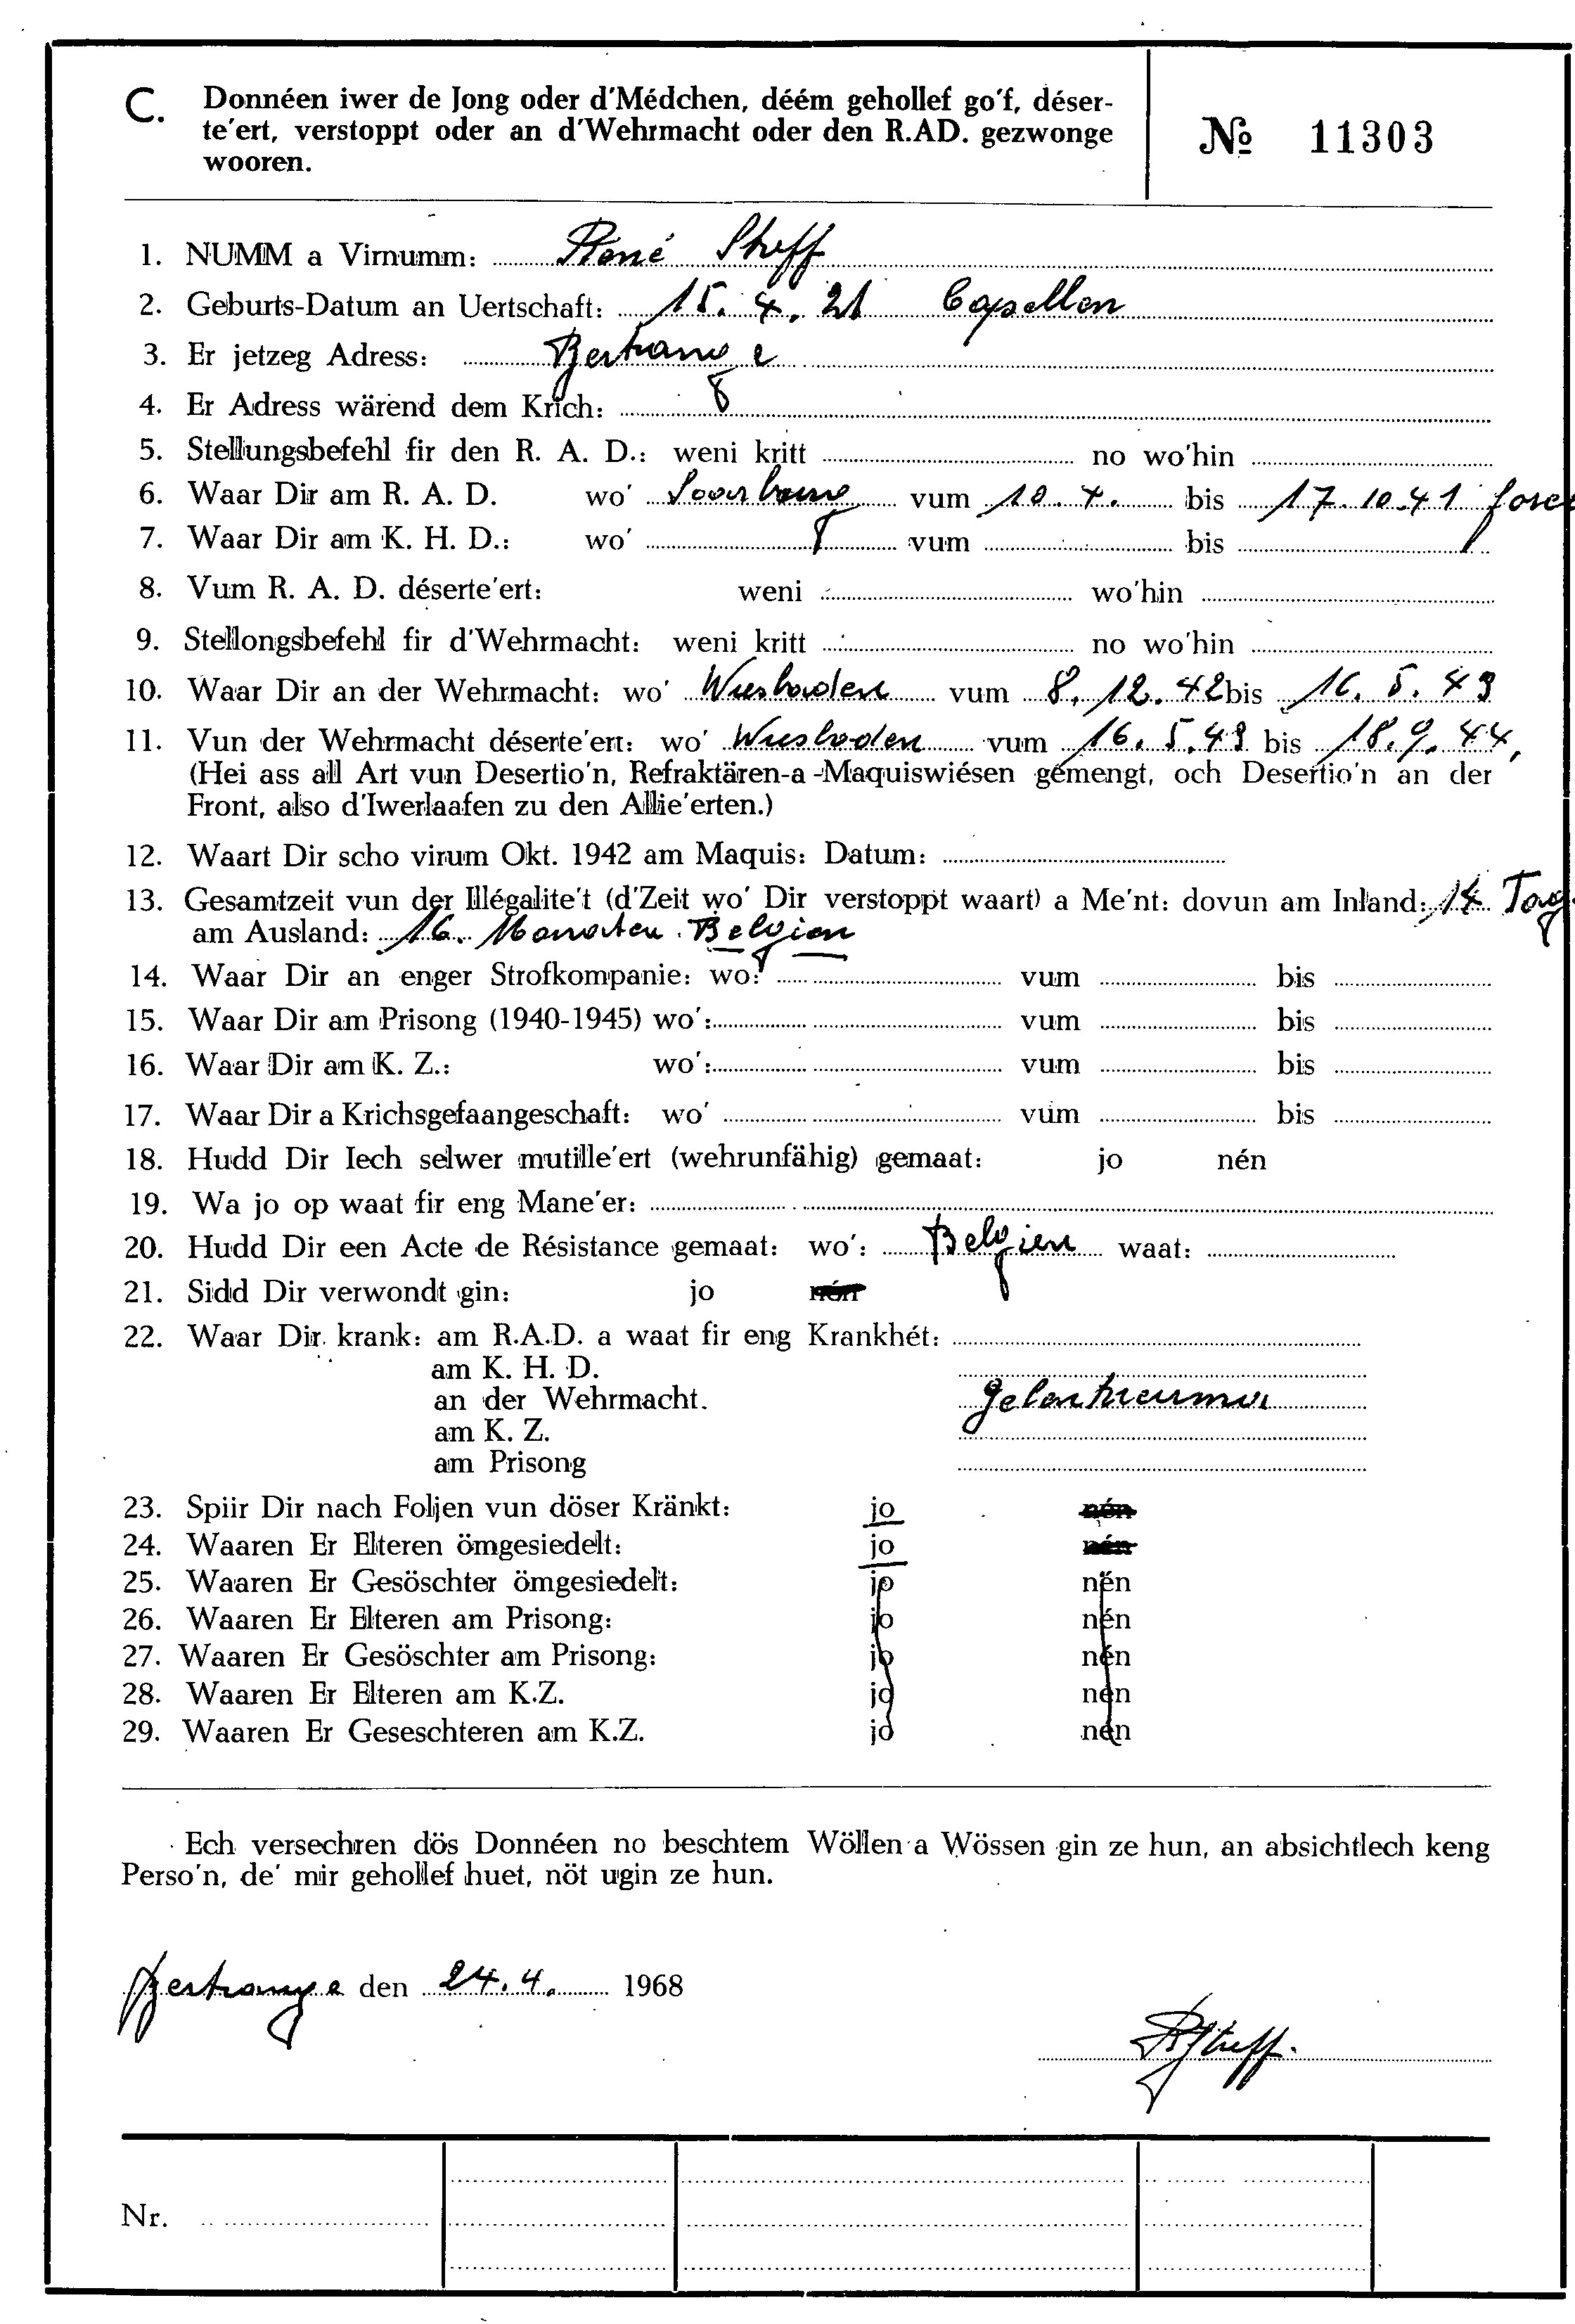 C. Donnéen iwer de Jong oder d'Médchen, déém gehollef go'f, déser-
te'ert, verstoppt oder an d'Wehrmacht oder den R.AD. gezwonge
wooren.
№ 11303
1. NUMM a Virnumm: René Steff
2. Geburts-Datum an Uertschaft: 15. 4. 21 Capellen
3. Er jetzeg Adress: Bertrange
4. Er Adress wärend dem Krich:
5. Stellungsbefehl fir den R. A. D.: weni kritt no wo'hin
6. Waar Dir am R. A. D. wo' Saarburg vum 10. 4. bis 17. 10. 41
7. Waar Dir am K. H. D.: wo' vum bis
8. Vum R. A. D. déserte'ert: weni wo'hin
9. Stellongsbefehl fir d'Wehrmacht: weni kritt no wo'hin
10. Waar Dir an der Wehrmacht: wo' Wiesbaden vum 8. 12. 42 bis 16. 5. 43
11. Vun der Wehrmacht déserte'ert: wo' Wiesbaden vum 16. 5. 43 bis 18. 9. 44,
(Hei ass all Art vun Desertio'n, Refraktären-a -Maquiswiésen gemengt, och Desertio'n an der
Front, also d'Iwerlaafen zu den Allie'erten.)
12. Waart Dir scho virum Okt. 1942 am Maquis: Datum:
13. Gesamtzeit vun der Illégalite't (d'Zeit wo' Dir verstoppt waart) a Me'nt: dovun am Inland: 14 Tag
am Ausland: 16. Monaten Belgien
14. Waar Dir an enger Strofkompanie: wo: vum bis
15. Waar Dir am Prisong (1940-1945) wo': vum bis
16. Waar Dir am K. Z.: wo': vum bis
17. Waar Dir a Krichsgefaangeschaft: wo' vum bis
18. Hudd Dir Iech selwer mutille'ert (wehrunfähig) gemaat: jo nén
19. Wa jo op waat fir eng Mane'er:
20. Hudd Dir een Acte de Résistance gemaat: wo': Belgien waat:
21. Sidd Dir verwondt gin: jo nén
22. Waar Dir krank: am R.A.D. a waat fir eng Krankhét:
am K. H. D.
an der Wehrmacht.
am K. Z.
am Prisong
23. Spiir Dir nach Foljen vun döser Kränkt: jo nén
24. Waaren Er Elteren ömgesiedelt: jo nén
25. Waaren Er Gesöschter ömgesiedelt: jo nén
26. Waaren Er Elteren am Prisong: jo nén
27. Waaren Er Gesöschter am Prisong: jo nén
28. Waaren Er Elteren am K.Z. jo nén
29. Waaren Er Geseschteren am K.Z. jo nén
Ech versechren dös Donnéen no beschtem Wöllen a Wössen gin ze hun, an absichtlech keng
Perso'n, de' mir gehollef huet, nöt ugin ze hun.
Bertrange den 24. 4. 1968
RSteff.
Nr.